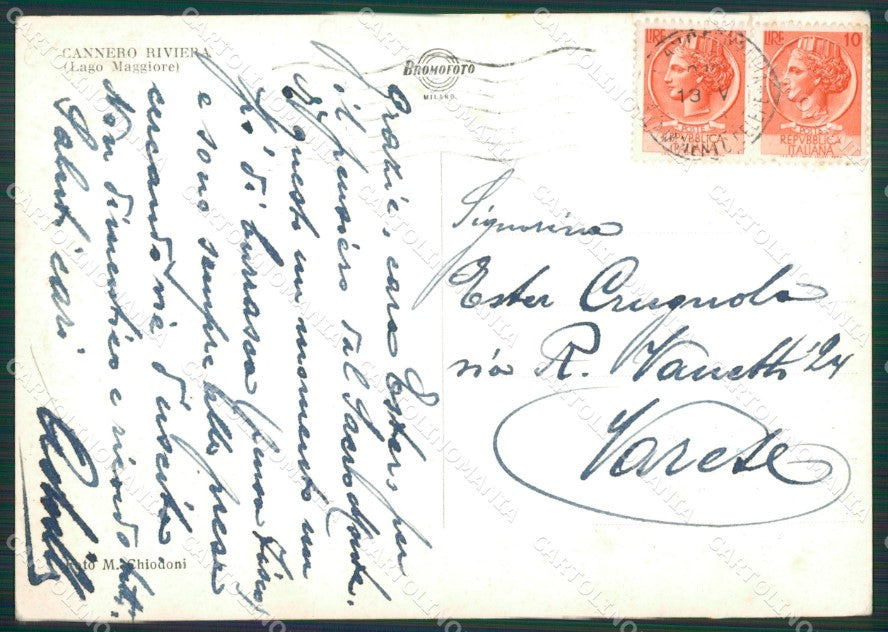 CANNERO RIVIERA
(Lago Maggiore)
BROMOFOTO
MILANO
LIRE
LIRE 10
POSTE
REPVBBLICA
ITALIANA
POSTE
REPVBBLICA
ITALIANA
13 V
Grazie, cara Ester, per
il pensiero dal Sacro Monte.
È questo un momento un
po' di burrasca
e sono sempre alla presa
cercando né d'uscita.
Non dimentico e ricordo tutti.
Saluti cari
Signorina
Ester Crugnola
via R. Vanetti 24
Varese
Foto M. Chiodoni
CARTOLINOMANIA